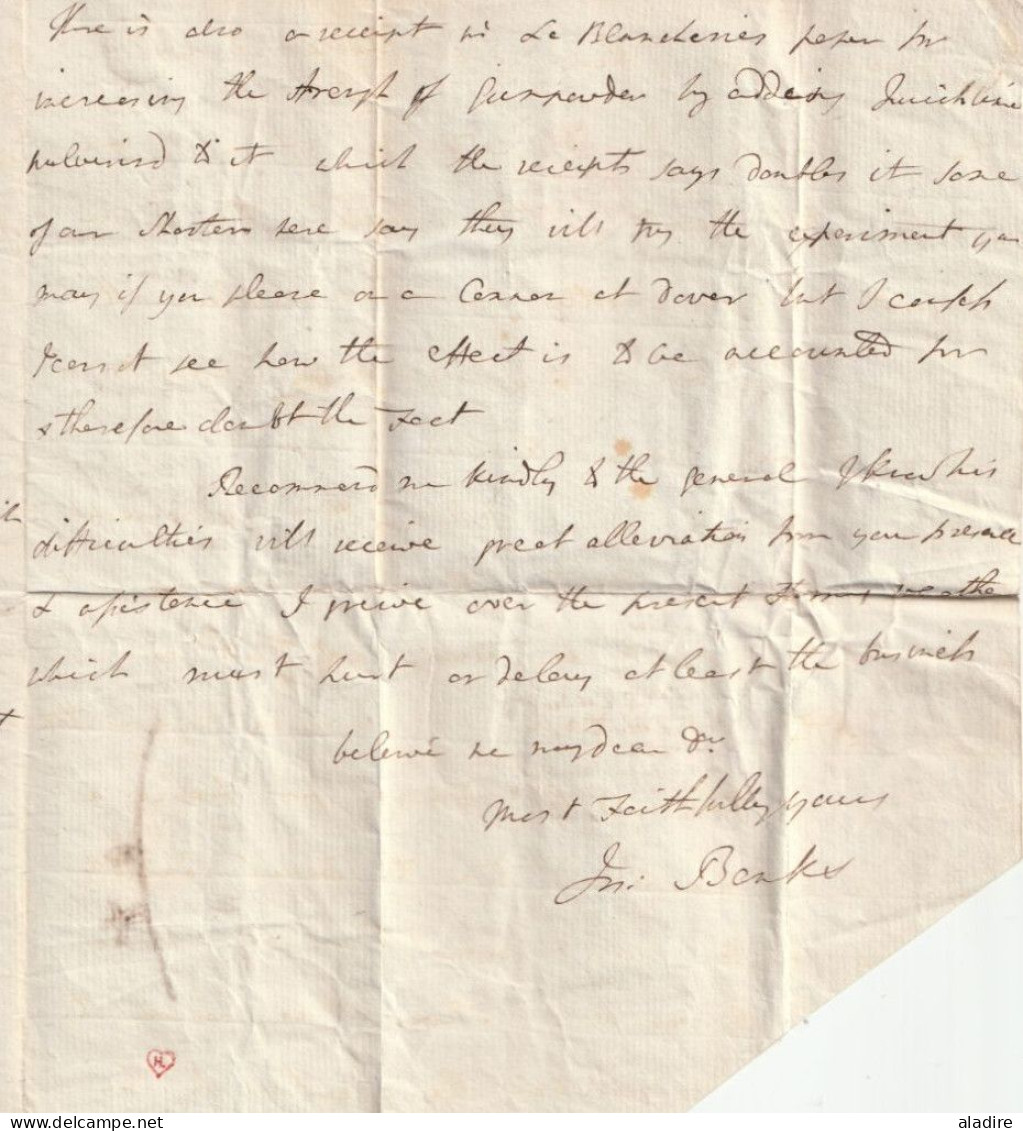 There is also a receipt in La Blancheries paper for
increasing the strength of Gunpowder by adding Quicklime
pulverised to it which the receipt says doubles it some
of our Shooters here say they will try the experiment you
may if you please on a Cannon at dover but I confess
I cannot see how the effect is to be accounted for
& therefore doubt the Fact
Recommend me kindly to the general I know his
difficulties will receive great alleviation from your presence
& assistence I greive over the present weather
which must hurt or delay at least the business
beleive me my dear Dr
Most Faithfully yours
Jos: Banks
H
aladire